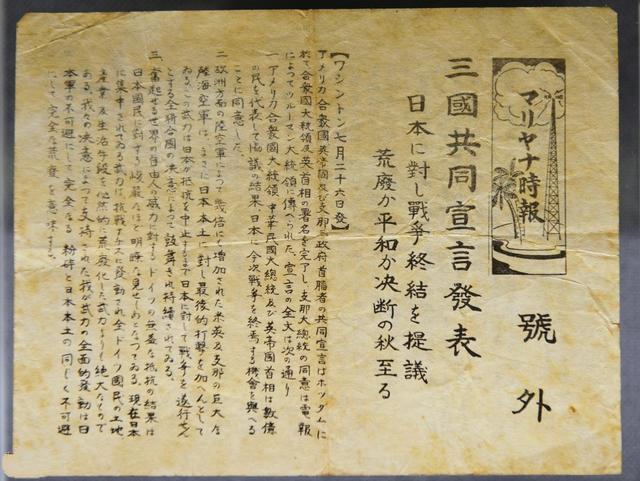 マリヤナ時報
號外
三國共同宣言發表
日本に對し戰爭終結を提議
荒廢か平和か决断の秋至る
【ワシントン七月二十六日発】
アメリカ合衆國英帝國及び支那三政府首脳者の共同宣言はポツダムに
於て合衆國大統領及英首相の署名を完了し支那大總統の同意は電報
によつてツルーマン大統領に傳へられた、宣言の全文は次の通り
一アメリカ合衆國大統領中華民國大總統及び英帝國首相は数億
の民を代表して協議の結果日本に今次戰爭を終焉する機會を與へる
ことに同意した.
二欧洲方面の陸空軍によつて幾倍にも増加された米英及支那の巨大な
陸海空軍は、まさに日本本土に對し最後的打撃を加へんとして
ゐる、この武力は日本が抵抗を中止するまで日本に對して戰爭を遂行せん
とする全聯合國の决意によつて鼓舞され持續されてゐる.
三奮起せる世界の自由人の威力に對するドイツの無益な抵抗の結果は
日本國民に對する峻嚴なほど明瞭な見せしめとなつてゐる.現在日本
に集中されてゐる武力は抗戰ナチスに發動され全ドイツ國民の土地
産業及生活手段を必然的に荒廢化した武力よりも絶大なもので
ある.我々の决意によつて支持された我が武力の全面的發動は日
本軍の不可避にして完全なる粉碎と日本本土の同じく不可避
にして完全な荒廢を意味する.